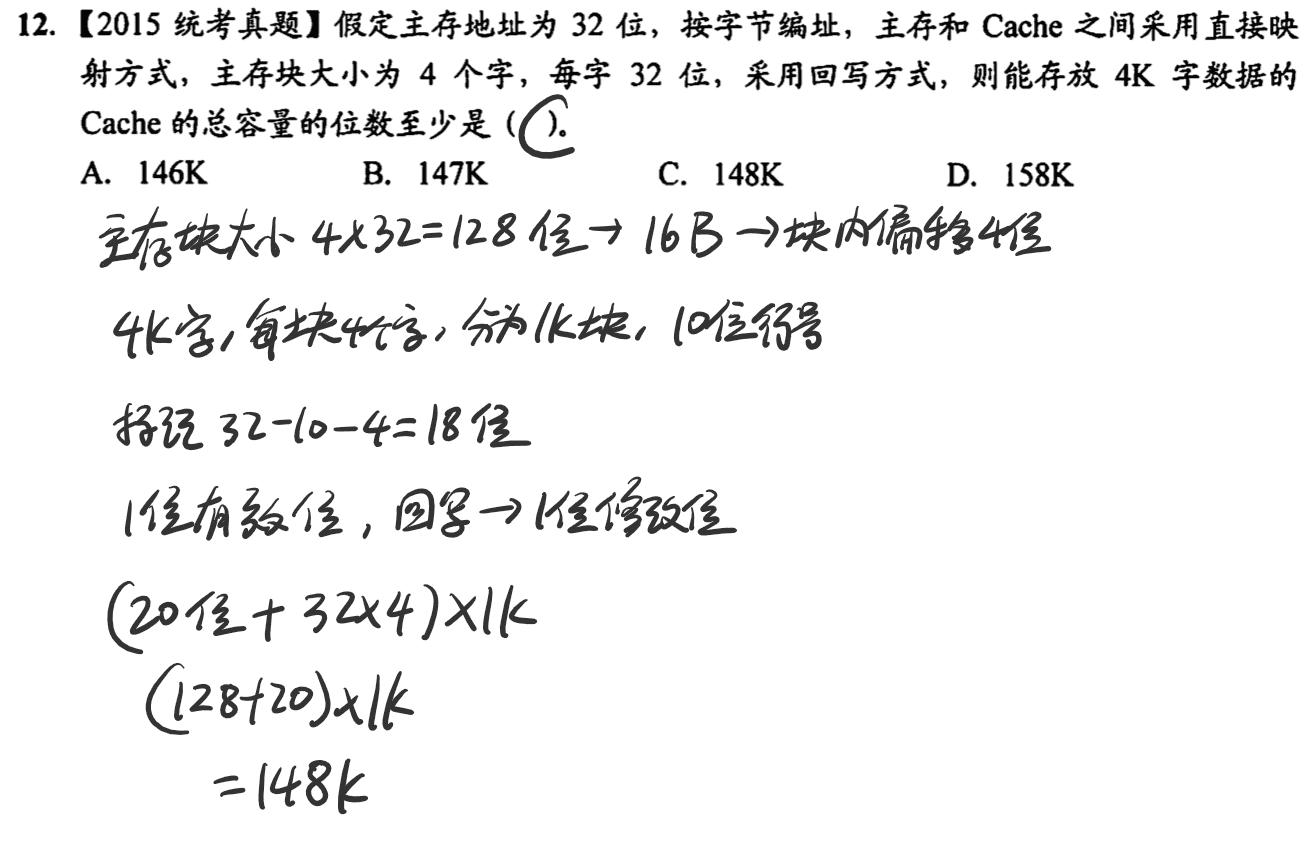 12.【2015 统考真题】假定主存地址为 32 位，按字节编址，主存和 Cache 之间采用直接映
射方式，主存块大小为 4 个字，每字 32 位，采用回写方式，则能存放 4K 字数据的
Cache 的总容量的位数至少是（C）。
A. 146K B. 147K C. 148K D. 158K
主存块大小 4×32=128位→16B→块内偏移4位
4K字，每块4个字，分为1K块，10位行号
标记 32-10-4=18位
1位有效位，回写→1位修改位
(20位+32×4)×1K
(128+20)×1K
=148K